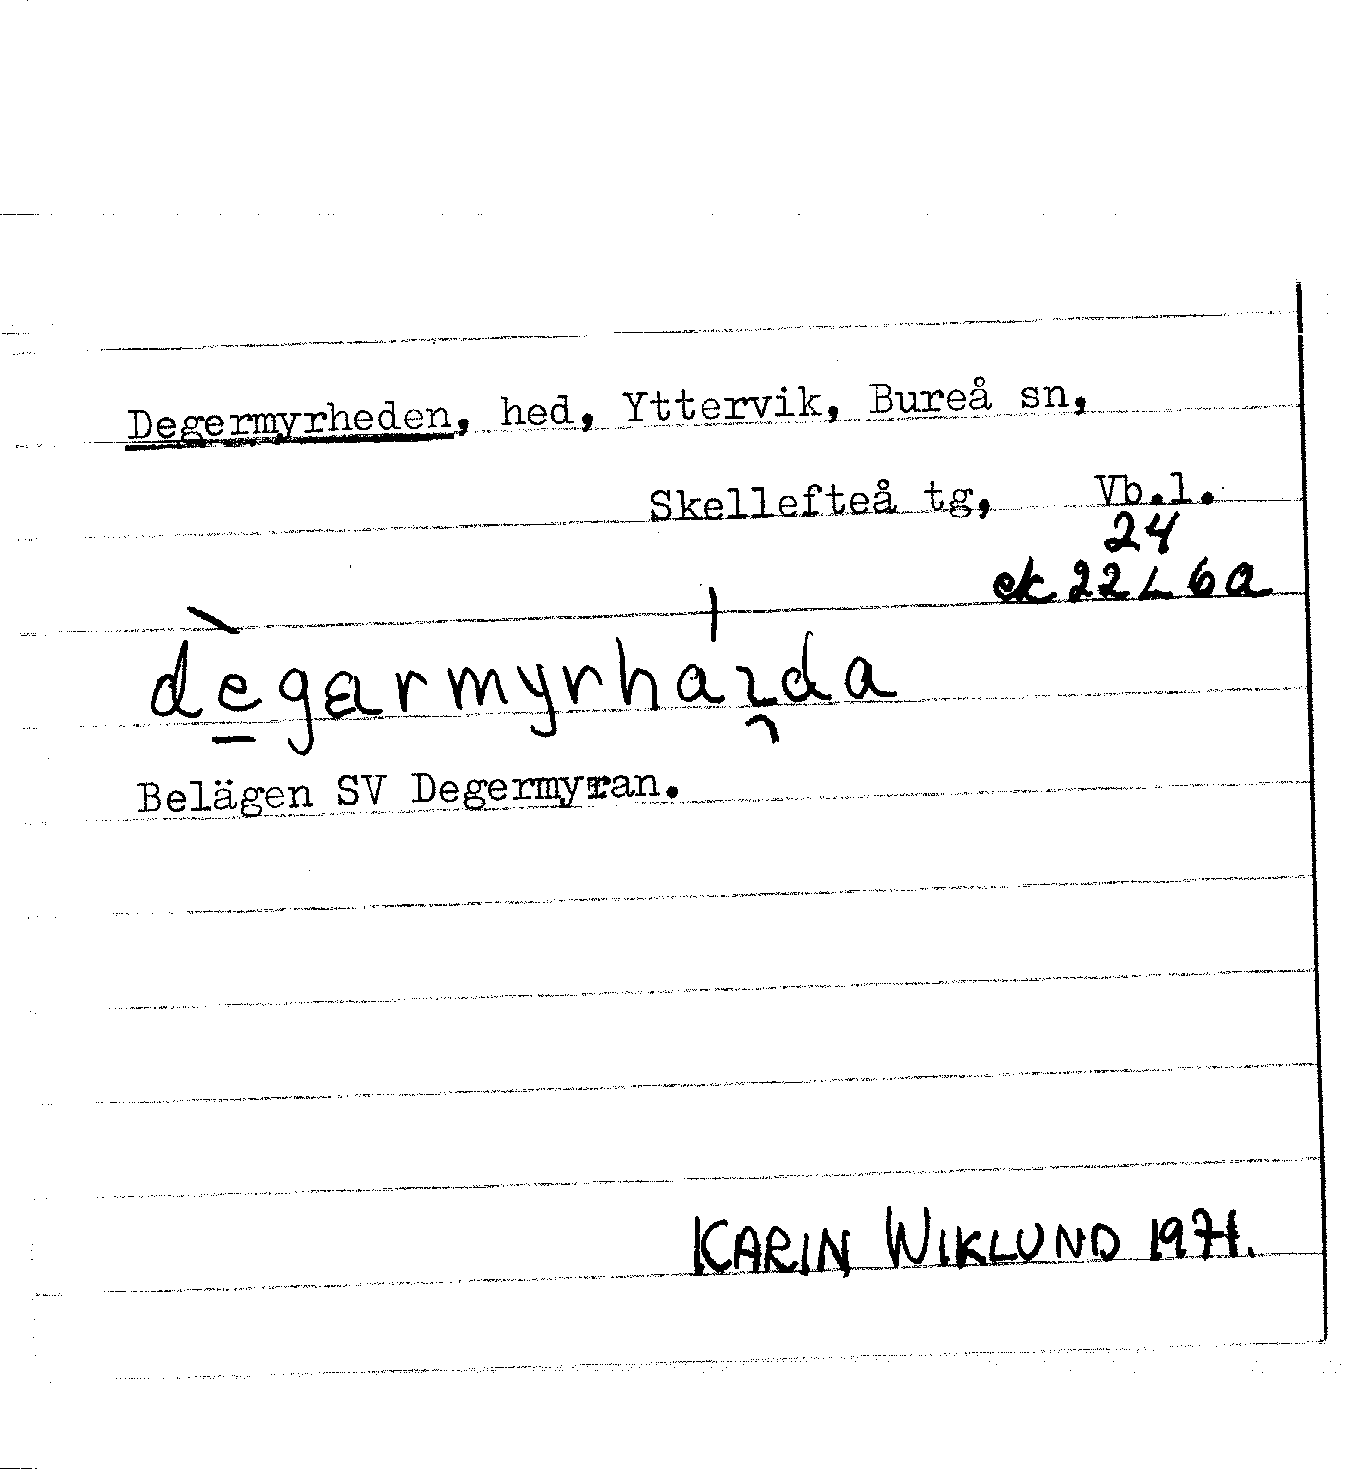 Degermyrheden, hed, Yttervik, Bureå sn,
Skellefteå tg, Vb.l.
24
ek 22 L 6a
dègarmyrhaɩda
Belägen SV Degermyran.
KARIN WIKLUND 1971.